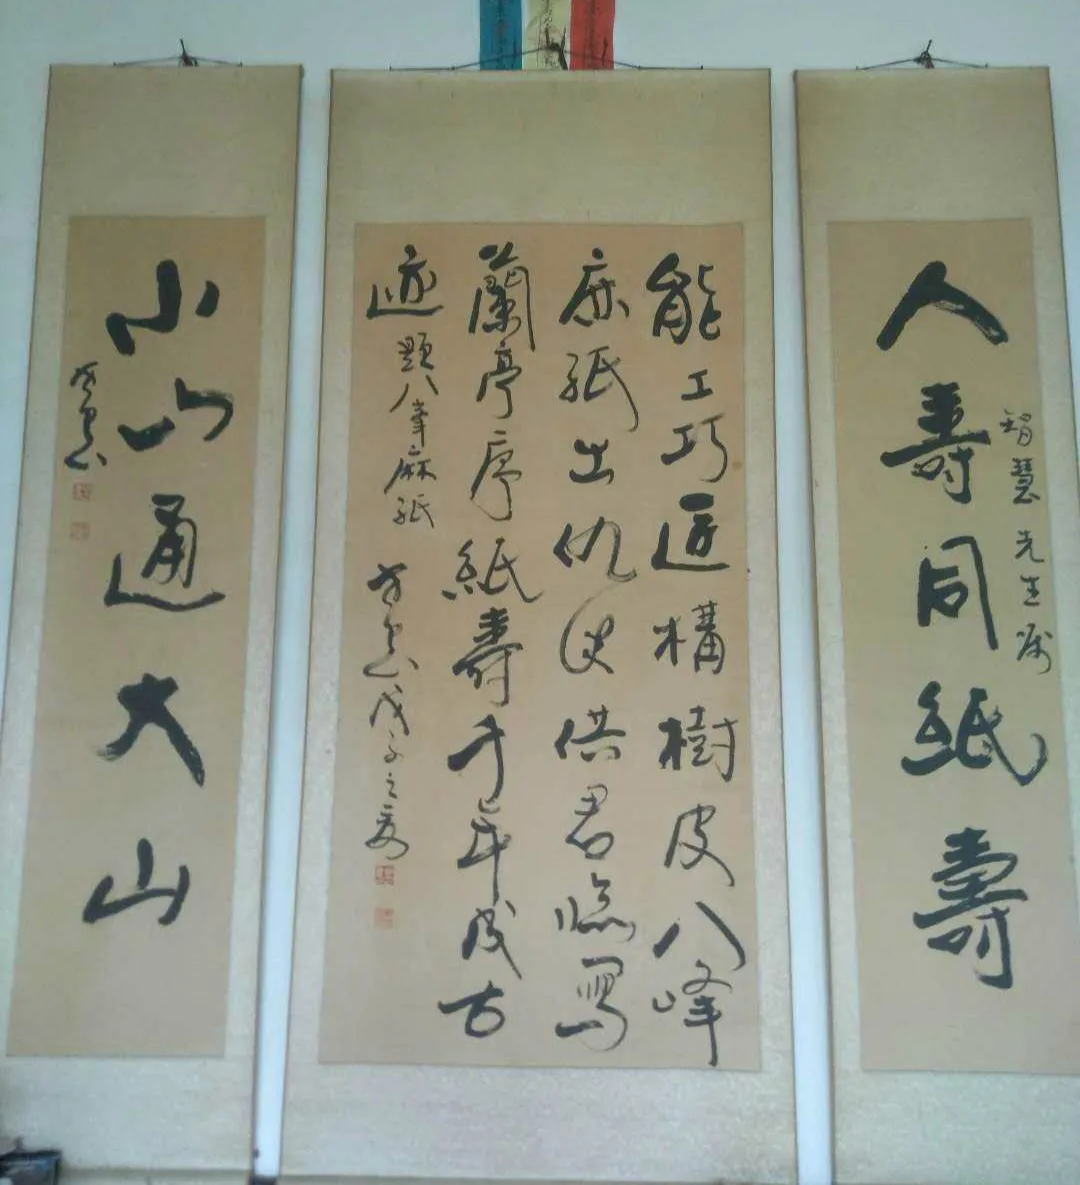 人壽同紙壽
智慧先生属
能工巧匠構樹皮八峰
麻紙出仇供君臨寫
蘭亭序紙壽千年成古
迹
題八峯麻紙
戊子之夏
小山通大山